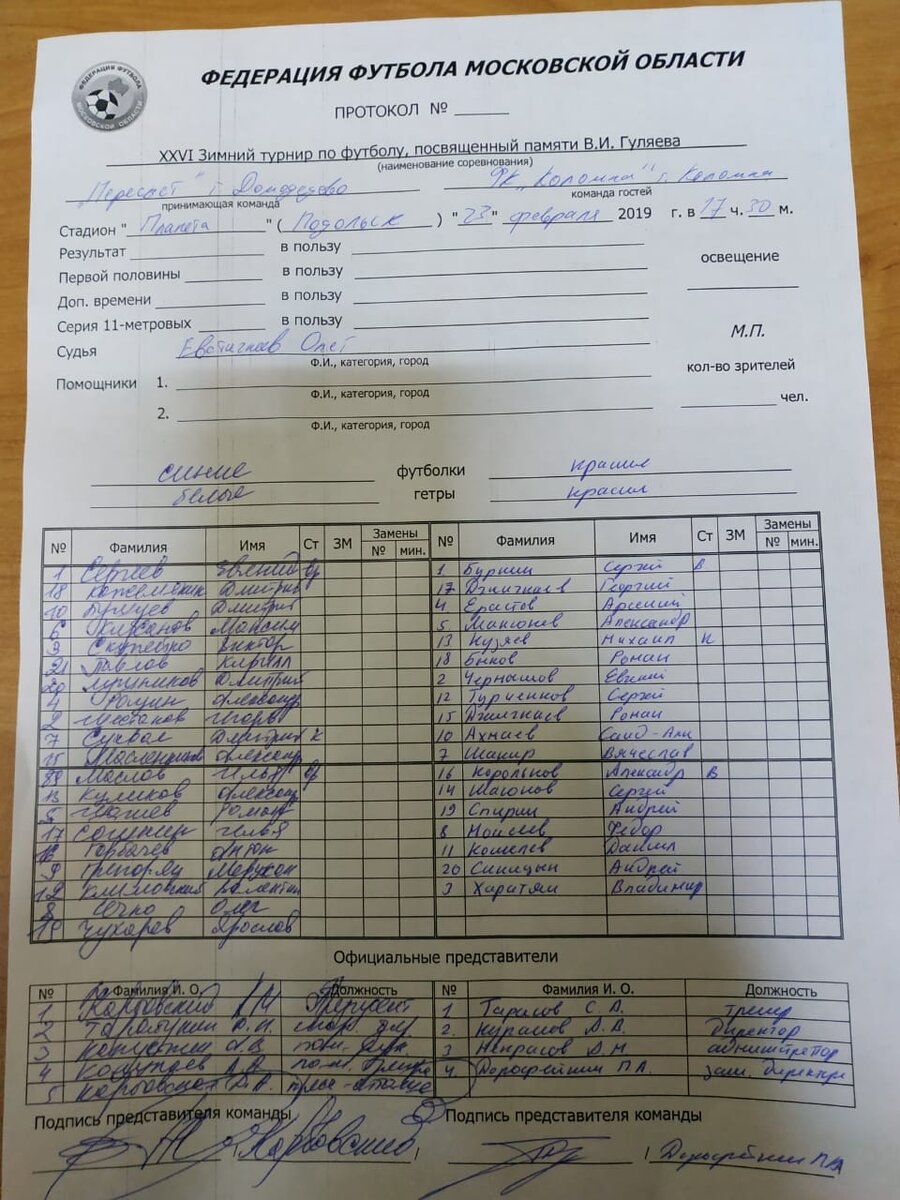 ФЕДЕРАЦИЯ ФУТБОЛА МОСКОВСКОЙ ОБЛАСТИ
ФЕДЕРАЦИЯ ФУТБОЛА МОСКОВСКОЙ ОБЛАСТИ
ПРОТОКОЛ №
XXVI Зимний турнир по футболу, посвященный памяти В.И. Гуляева
(наименование соревнования)
"Пересвет" г. Домодедово ФК "Коломна" г. Коломна
принимающая команда команда гостей
Стадион "Планета" (Подольск) "23" февраля 2019 г. в 17 ч. 30 м.
Результат в пользу освещение
Первой половины в пользу
Доп. времени в пользу
Серия 11-метровых в пользу М.П.
Судья Олег
Ф.И., категория, город кол-во зрителей
Помощники 1.
Ф.И., категория, город чел.
2.
Ф.И., категория, город
синие футболки красн
белые гетры красн
№ Фамилия Имя Ст ЗМ Замены № мин. № Фамилия Имя Ст ЗМ Замены № мин.
1 Сергеев Евгений Вр 1 Бурнин Сергей В
18 Кожемякин Дмитрий 17 Джигкаев Георгий
10 Дмитрий 4 Ерастов Арсений
6 Максим 5 Александр
3 Виктор 13 Кузяев Михаил К
21 Павлов Кирилл 18 Быков Роман
20 Лушников Дмитрий 2 Чернышов Евгений
4 Рощин Александр 12 Туриченков Сергей
2 Шестаков Игорь 15 Джигкаев Роман
7 Дмитрий К 10 Ахмаев Саид-Али
15 Масленников Александр 7 Шакир Вячеслав
88 Маслов Илья Вр 16 Корольков Александр В
13 Куликов Александр 14 Шагонов Сергей
5 Роман 19 Спирин Андрей
17 Илья 8 Моисеев Федор
16 Горбачев Антон 11 Кошелев Даниил
9 Григорян Мерухан 20 Синицын Андрей
12 Климовский Валентин 3 Харатян Владимир
8 Олег
19 Чухарев Ярослав
Официальные представители
№ Фамилия И. О. Должность № Фамилия И. О. Должность
1 Карбовский Президент 1 Тарасов С. А. тренер
2 2. Курасов Д. В. директор
3 3 Некрасов Д. Н администратор
4 4. Дорофейкин П.А. зам. директора
5
Подпись представителя команды Подпись представителя команды
/ Карбовский / / Дорофейкин ПА